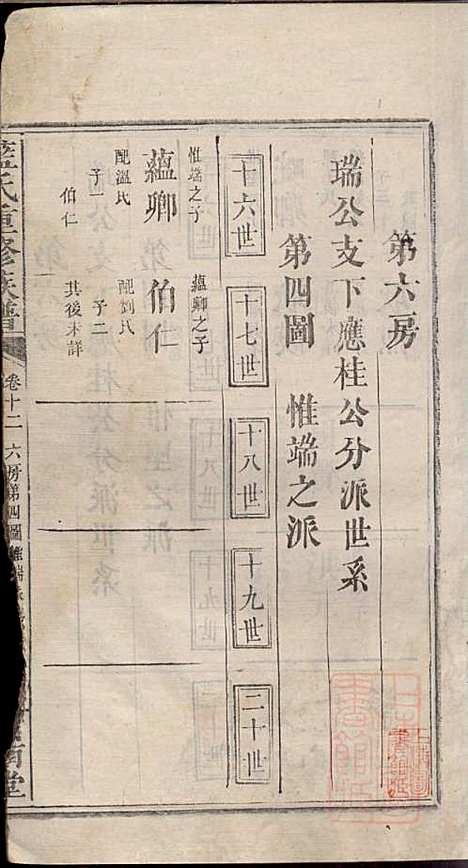 第六房
瑞公支下應桂公分派世系
第四圖 惟端之派
十六世 十七世 十八世 十九世 二十世
惟端之子
蘊卿
配溫氏
子一
伯仁
蘊卿之子
伯仁
配劉氏
子二
其後未詳
氏重修族譜
卷十二 六房第四圖惟端
堂